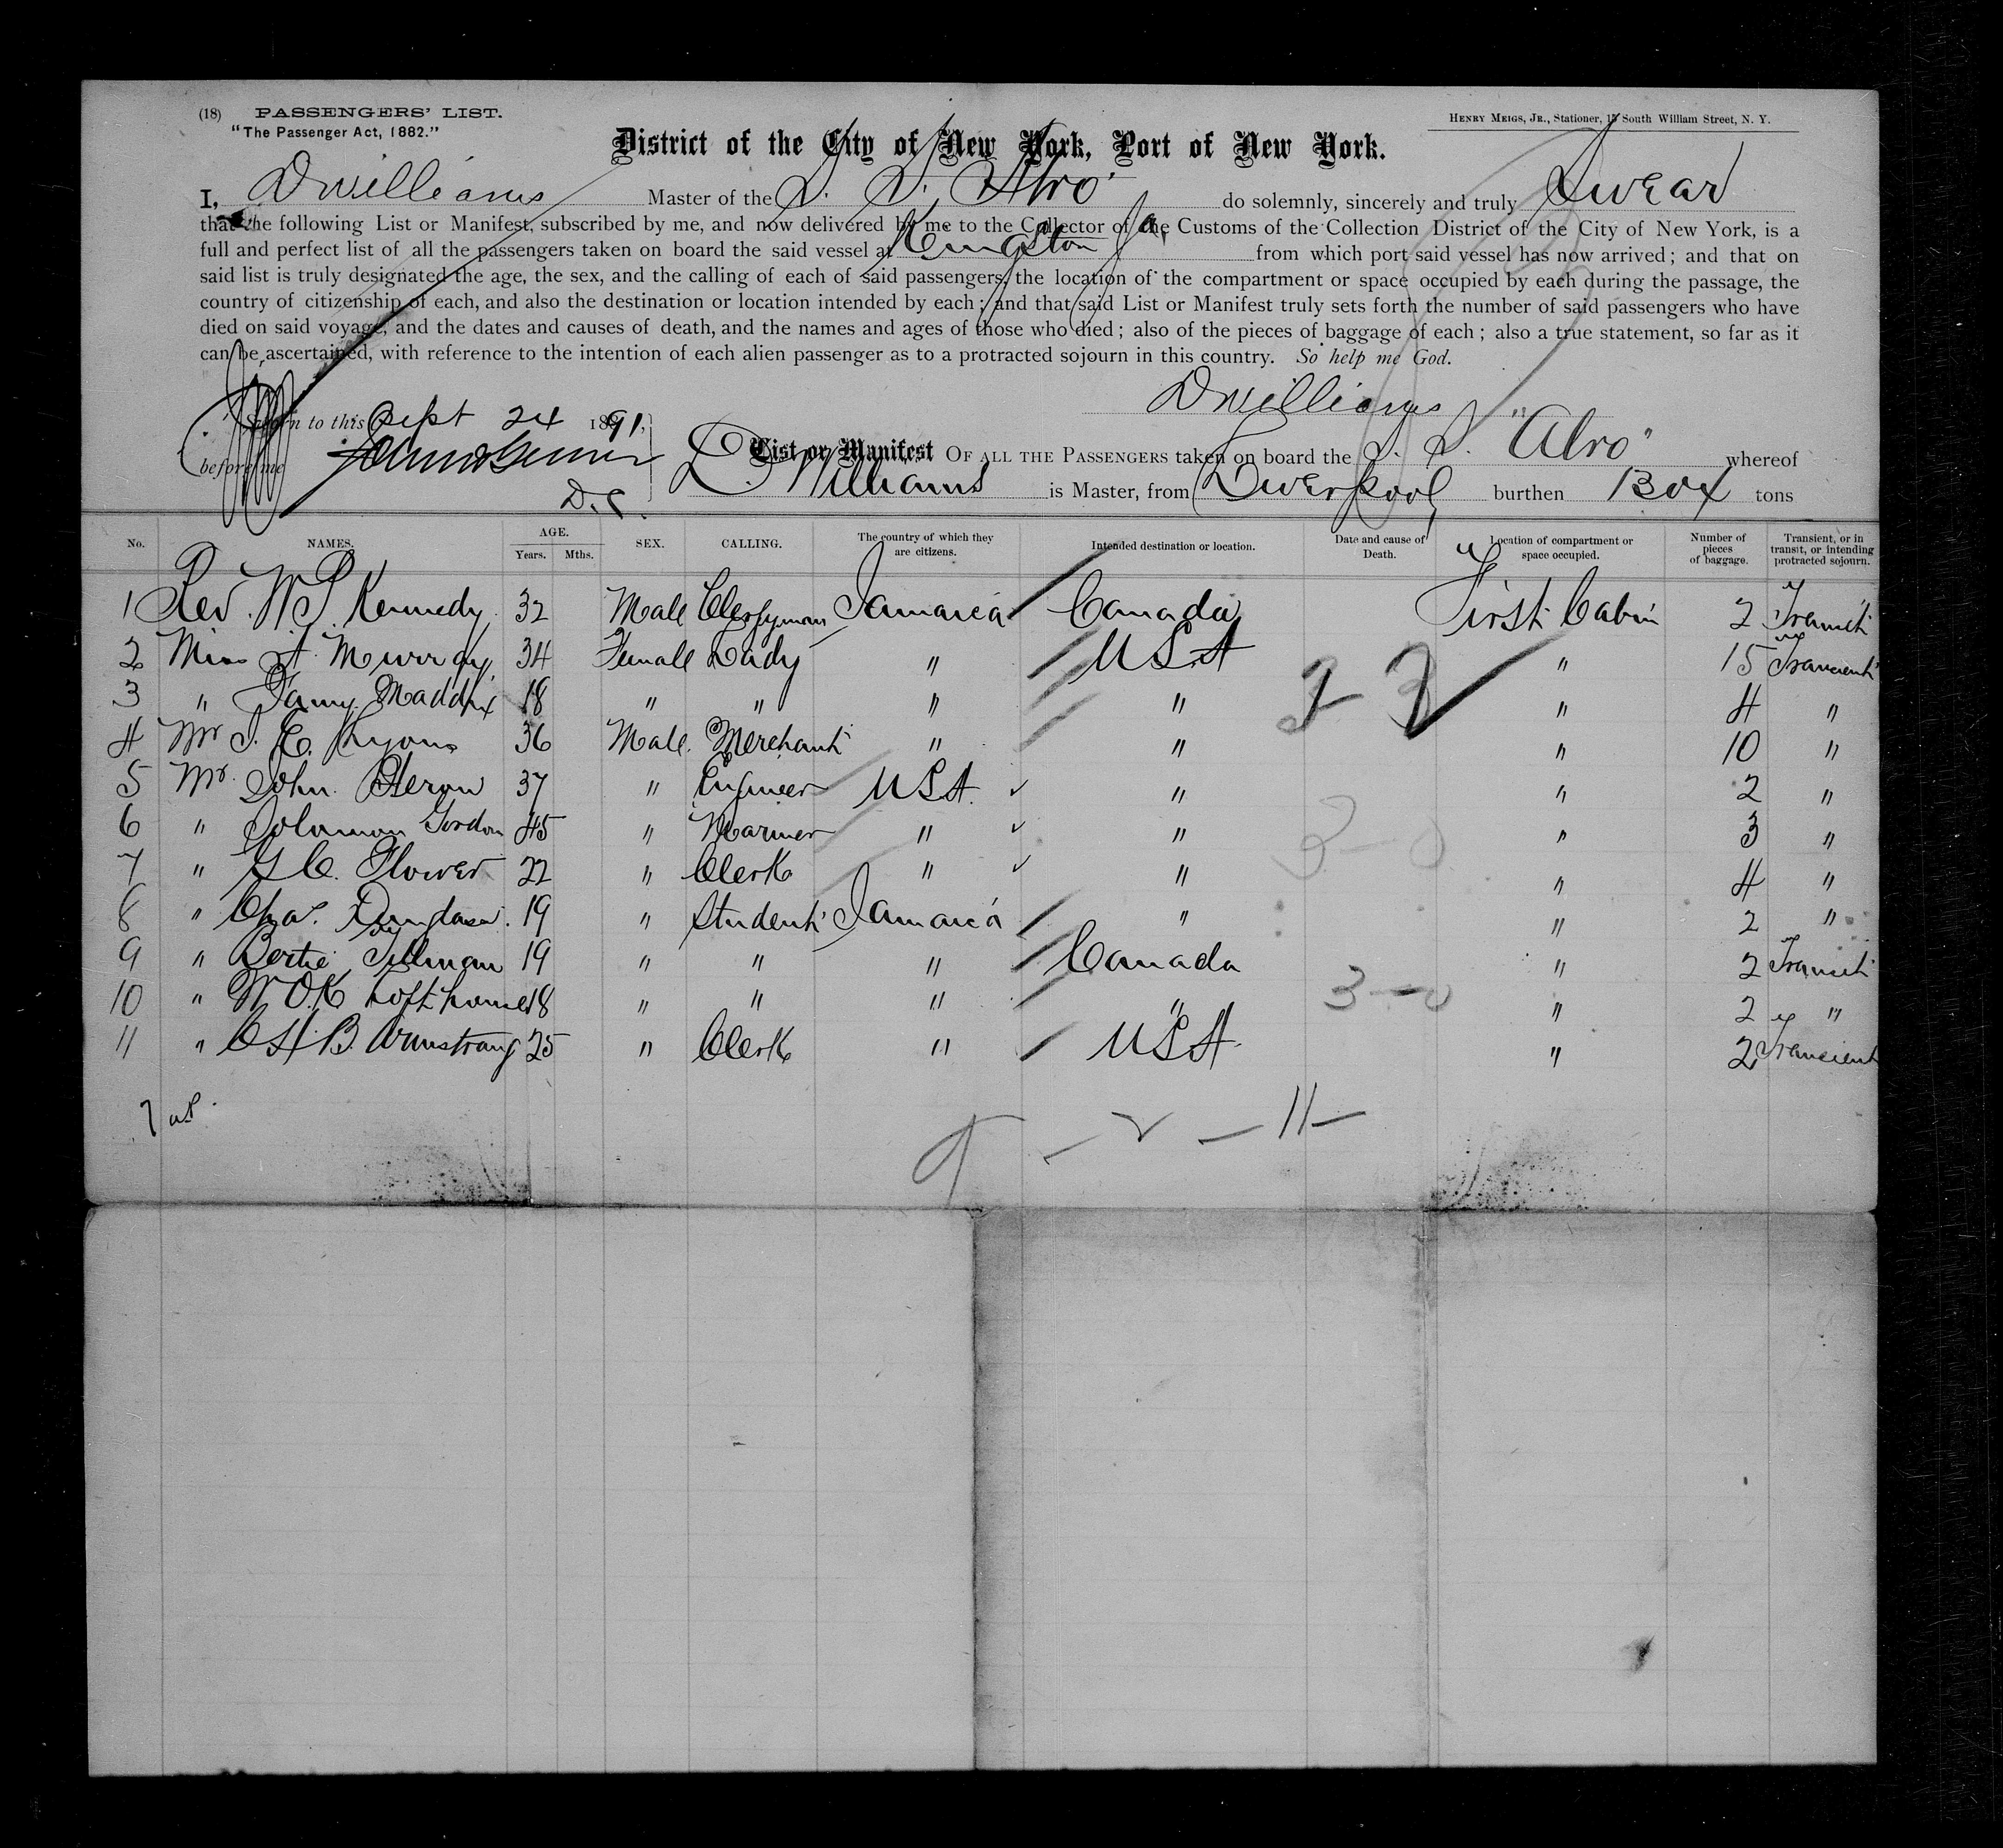 (18) PASSENGERS' LIST.
"The Passenger Act, 1882."
HENRY MEIGS, JR., Stationer, 15 South William Street, N. Y.
District of the City of New York, Port of New York.
I, D Williams Master of the S. S. Alvo do solemnly, sincerely and truly Swear
that the following List or Manifest, subscribed by me, and now delivered by me to the Collector of the Customs of the Collection District of the City of New York, is a
full and perfect list of all the passengers taken on board the said vessel at Kingston Ja, from which port said vessel has now arrived; and that on
said list is truly designated the age, the sex, and the calling of each of said passengers, the location of the compartment or space occupied by each during the passage, the
country of citizenship of each, and also the destination or location intended by each; and that said List or Manifest truly sets forth the number of said passengers who have
died on said voyage, and the dates and causes of death, and the names and ages of those who died; also of the pieces of baggage of each; also a true statement, so far as it
can be ascertained, with reference to the intention of each alien passenger as to a protracted sojourn in this country. So help me God.
D Williams
Sworn to this Sept 24 1891,
before me
D. C.
List or Manifest OF ALL THE PASSENGERS taken on board the S. S. "Alvo" whereof
D. Williams is Master, from Liverpool, burthen 1304 tons
No. NAMES. AGE. Years. Mths. SEX. CALLING. The country of which they are citizens. Intended destination or location. Date and cause of Death. Location of compartment or space occupied. Number of pieces of baggage. Transient, or in transit, or intending protracted sojourn.
1 Rev. W P. Kennedy 32 Male Clergyman Jamaica Canada First Cabin 2 Transit
2 Miss A. Murray 34 Female Lady " USA " 15 Transient
3 " Fanny Maddix 18 " " " " " 4 "
4 Mr S. E. Lyons 36 Male Merchant " " " 10 "
5 Mr. John Heron 37 " Engineer USA " " 2 "
6 " Solomon Gordon 45 " Mariner " " " 3 "
7 " G C. Flower 22 " Clerk " " " 4 "
8 " Chas. 19 " Student Jamaica " " 2 "
9 " Bertie Tillman 19 " " " Canada " 2 Transit
10 " W O.K Lofthouse 18 " " " " " 2 "
11 " C H. B. Armstrong 25 " Clerk " USA " 2 Transient
3-0
3-0
9 - 2 - 11-